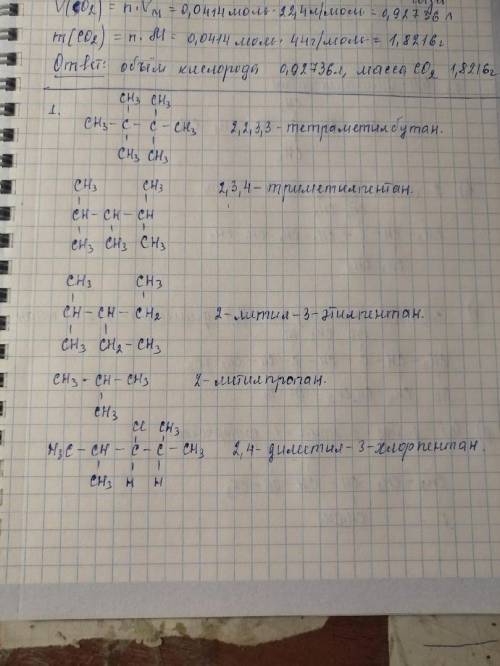 V(CO2) = n · Vм = 0,0414 моль · 22,4 л/моль = 0,92736 л
m(CO2) = n · M = 0,0414 моль · 44 г/моль = 1,8216 г
Ответ: объём кислорода 0,92736 л, масса CO2 1,8216 г
1.
CH3 CH3
CH3 – C – C – CH3 2,2,3,3 – тетраметилбутан.
CH3 CH3
CH3 CH3 2,3,4 – триметилпентан.
CH – CH – CH
CH3 CH3 CH3
CH3 CH3
CH – CH – CH2 2 – метил – 3 – этилпентан.
CH3 CH2 – CH3
CH3 – CH – CH3 2 – метилпропан.
CH3
Cl CH3
H3C – CH – C – C – CH3 2,4 – диметил – 3 – хлорпентан.
CH3 H H